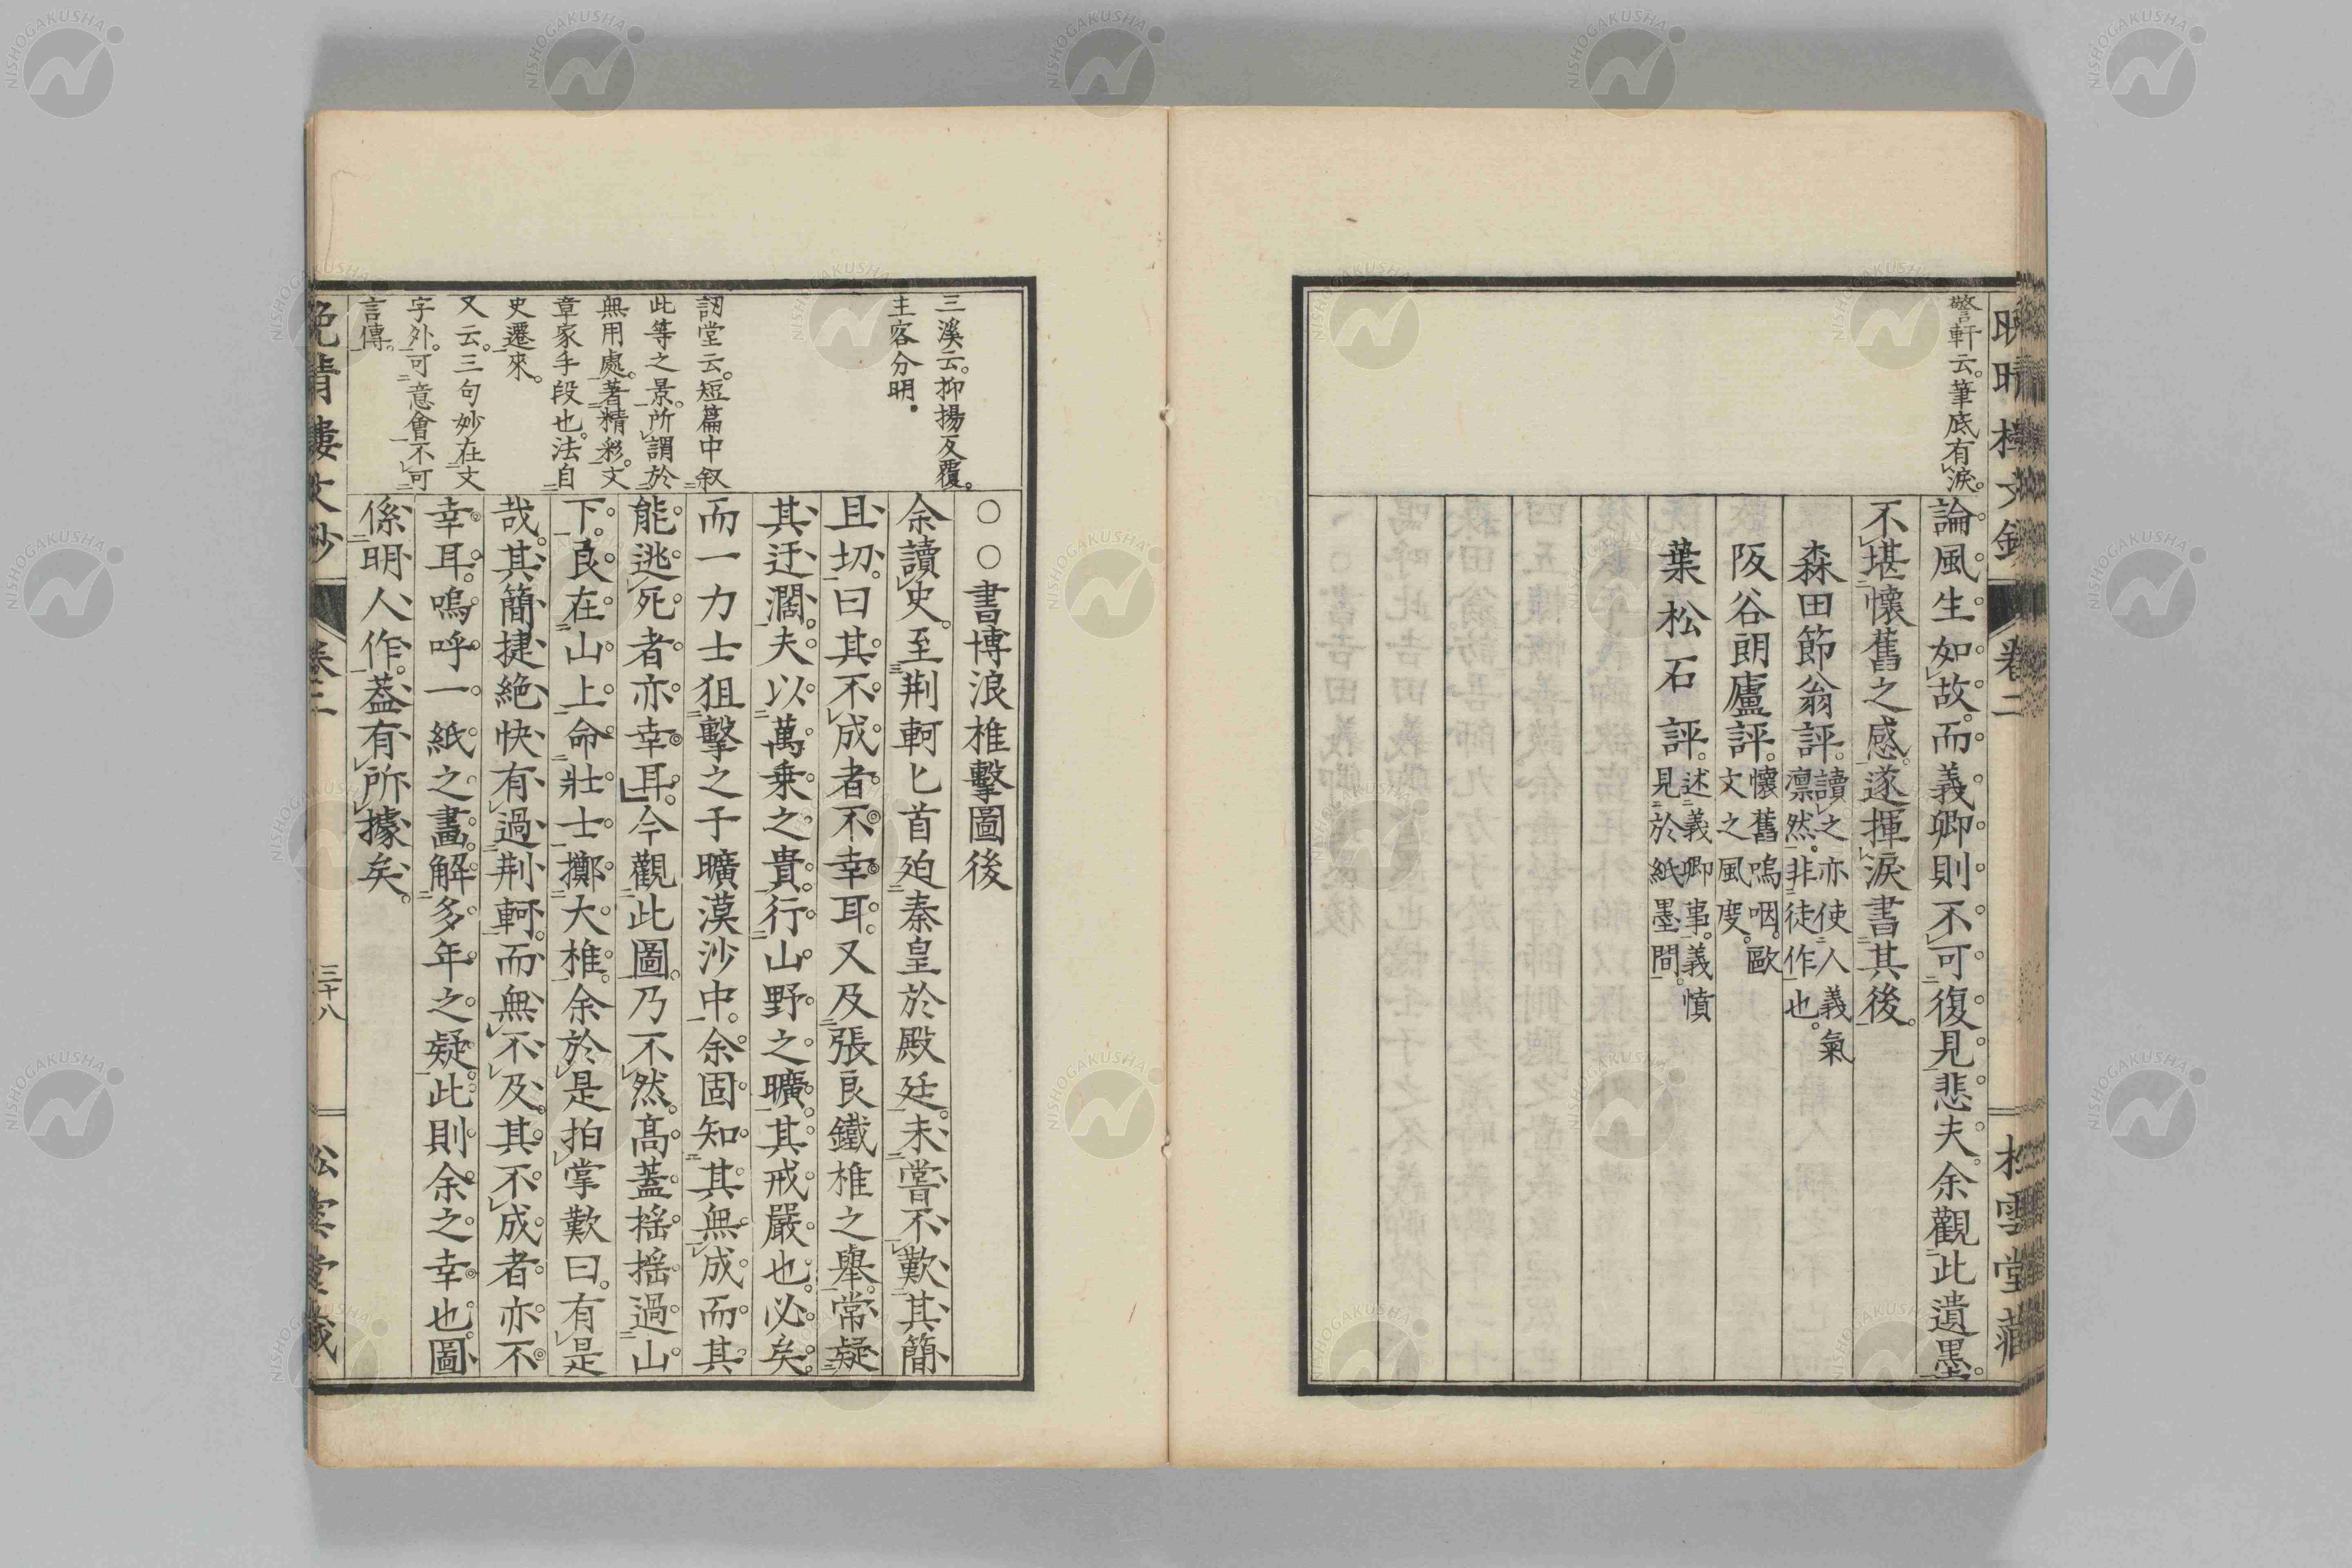 警軒云。筆底有淚。
論風生如故。而義卿則不可復見。悲夫。余觀此遺墨。
不堪懷舊之感。遂揮淚書其後。
森田節翁評。讀之亦使人義氣
凛然。非徒作也。
阪谷朗廬評。懷舊嗚咽。歐
文之風度。
葉松石評。述義卿事。義憤
見於紙墨間。
卷二
三溪云。抑揚反覆。
主客分明。
訒堂云。短篇中叙
此等之景。所謂於
無用處。著精彩。文
章家手段也。法自
史遷來。
又云。三句妙在文
字外。可意會不可
言傳。
〇〇書博浪椎擊圖後
余讀史。至荆軻匕首廹秦皇於殿廷。未嘗不歎其簡
且切。曰其不成者。不幸耳。又及張良鐵椎之舉。常疑
其迂濶。夫以萬乗之貴。行山野之曠。其戒嚴也。必矣。
而一力士狙擊之于曠漠沙中。余固知其無成。而其
能逃死者。亦幸耳。今觀此圖。乃不然。高蓋搖搖過山
下。良在山上。命壯士。擲大椎。余於是拍掌歎曰。有是
哉。其簡捷絶快。有過荆軻。而無不及。其不成者。亦不
幸耳。嗚呼。一紙之畫。解多年之疑。此則余之幸也。圖
係明人作。葢有所據矣。
晩晴樓文鈔
卷二
三十八
松雲堂藏
NISHOGAKUSHA